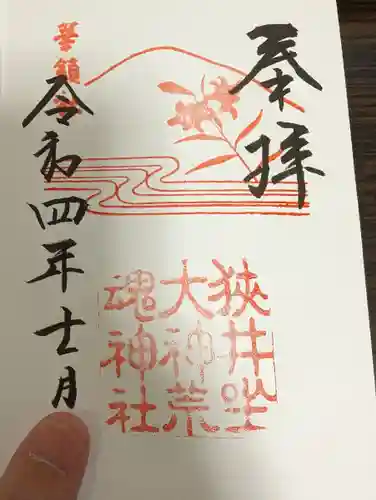 奉拝
狭井坐
大神荒
魂神社
華鎮社
令和四年十一月